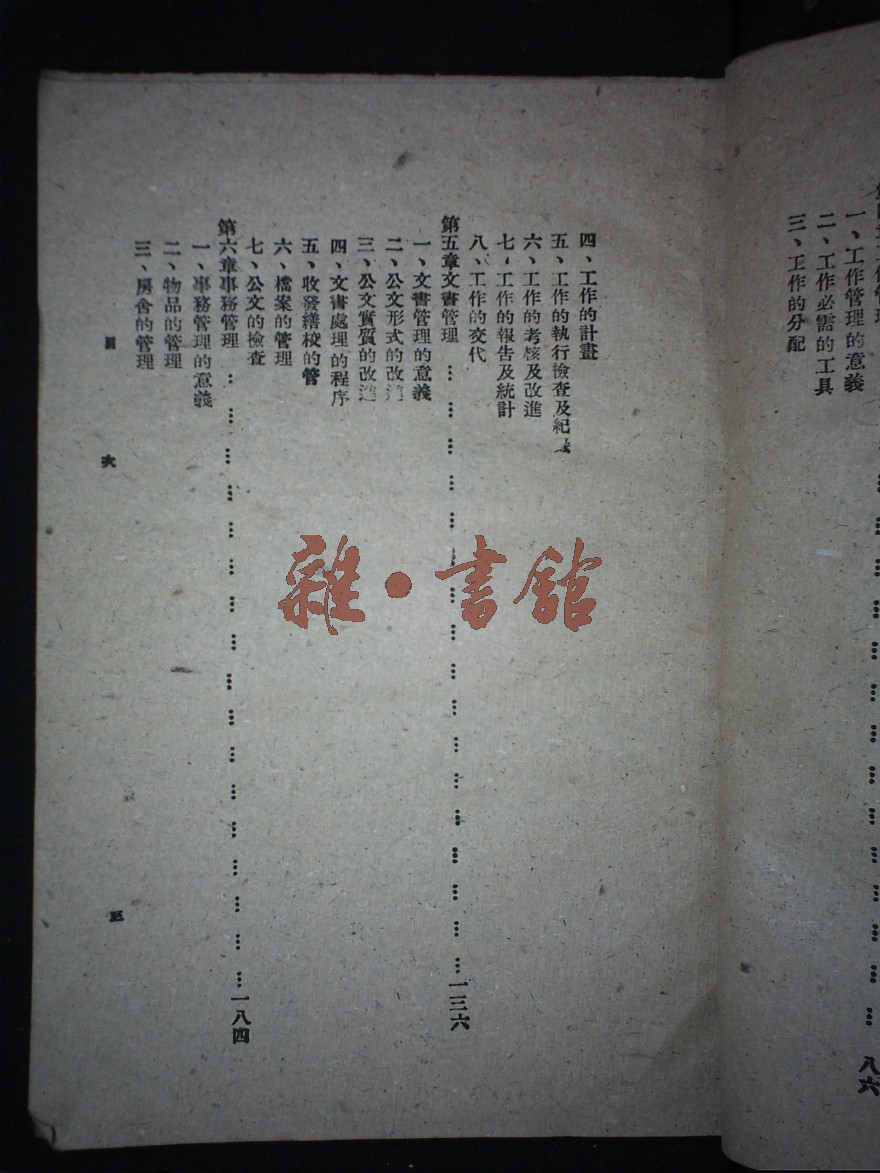 一、工作管理的意義
二、工作必需的工具
三、工作的分配
八六
四、工作的計畫
五、工作的執行檢查及紀
六、工作的考核及改進
七、工作的報告及統計
八、工作的交代
第五章文書管理 … … … … … … … … … … … … … … … …一三六
一、文書管理的意義
二、公文形式的改進
三、公文實質的改進
四、文書處理的程序
五、收發繕校的管
六、檔案的管理
七、公文的檢查
第六章事務管理 … … … … … … … … … … … … … … … …一八四
一、事務管理的意義
二、物品的管理
三、房舍的管理
三
雜·書館